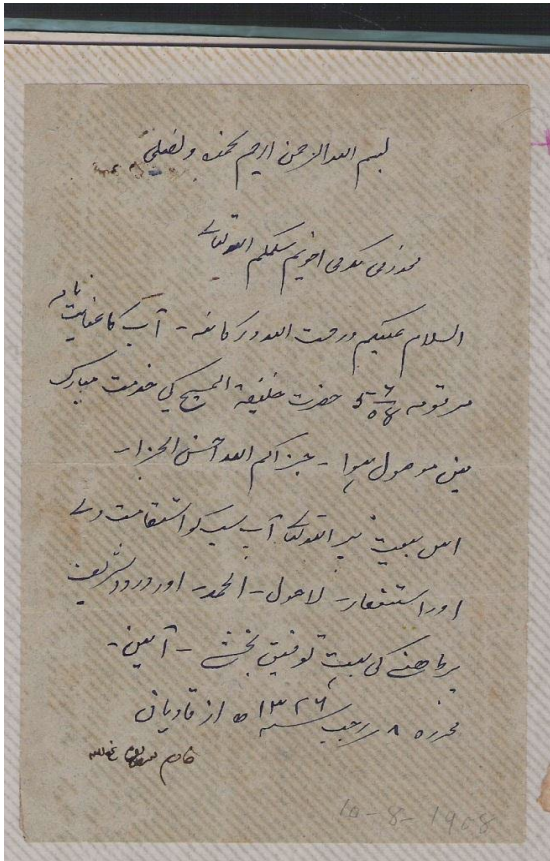 بسم اللہ الرحمن الرحیم نحمدہ و نصلی
مخدومی مکرمی اخویم سلمکم اللہ تعالے
السلام علیکم ورحمت اللہ وبرکاتہ - آپ کا عنایت نامہ
مرقومہ حضرت خلیفۃ المسیح کی خدمت مبارک
میں موصول ہوا - جزاکم اللہ احسن الجزا -
اس بیعت پر اللہ تعالے آپ سب کو استقامت دے
اور استغفار - لاحول - الحمد - اور درود شریف
پڑھنے کی بہت توفیق بخشے - آمین -
محررہ ۸ رجب سنہ ۱۳۲۶ ھ از قادیان
خادم
10-8-1908